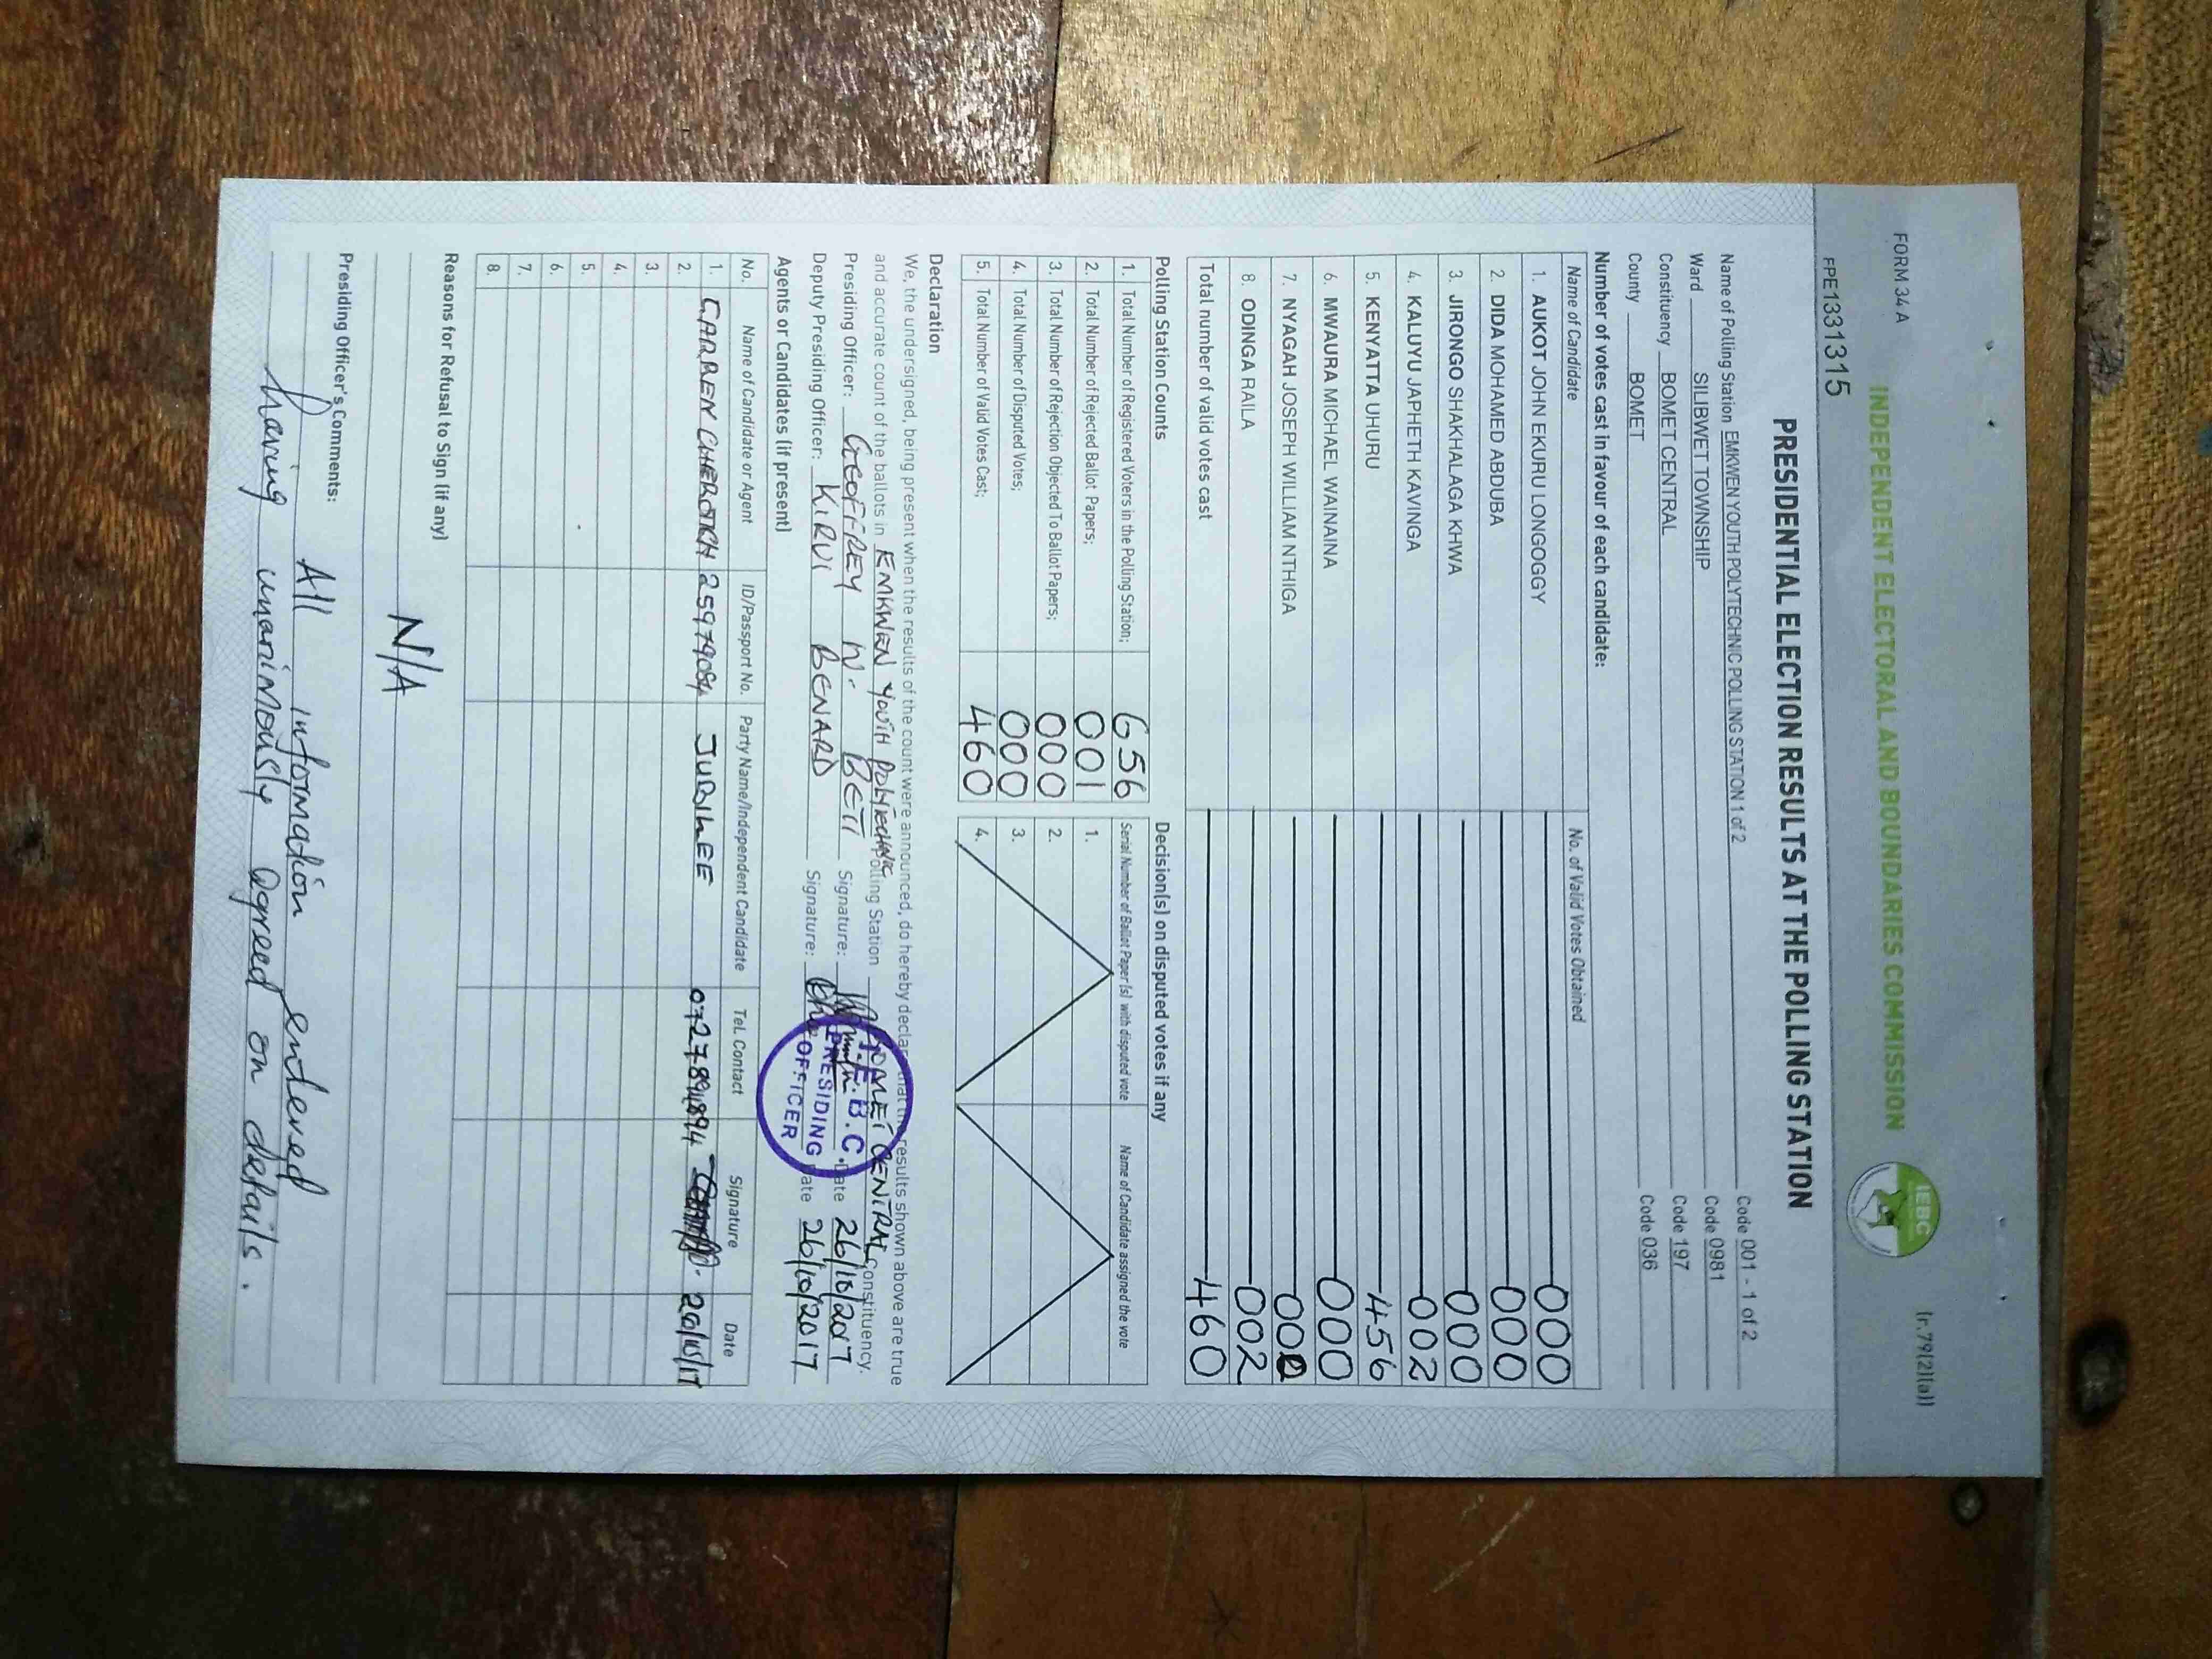 FORM 34 A
(r.79(2)(a))
INDEPENDENT ELECTORAL AND BOUNDARIES COMMISSION
IEBC
FPE1331315
PRESIDENTIAL ELECTION RESULTS AT THE POLLING STATION
Name of Polling Station EMKWEN YOUTH POLYTECHNIC POLLING STATION 1 of 2 Code 001 - 1 of 2
Ward SILIBWET TOWNSHIP Code 0981
Constituency BOMET CENTRAL Code 197
County BOMET Code 036
Number of votes cast in favour of each candidate:
Name of Candidate No. of Valid Votes Obtained
1. AUKOT JOHN EKURU LONGOGGY 000
2. DIDA MOHAMED ABDUBA 000
3. JIRONGO SHAKHALAGA KHWA 000
4. KALUYU JAPHETH KAVINGA 002
5. KENYATTA UHURU 456
6. MWAURA MICHAEL WAINAINA 000
7. NYAGAH JOSEPH WILLIAM NTHIGA 000
8. ODINGA RAILA 002
Total number of valid votes cast 460
Polling Station Counts
1. Total Number of Registered Voters in the Polling Station; 656
2. Total Number of Rejected Ballot Papers; 001
3. Total Number of Rejection Objected To Ballot Papers; 000
4. Total Number of Disputed Votes; 000
5. Total Number of Valid Votes Cast; 460
Decision(s) on disputed votes if any
Serial Number of Ballot Paper (s) with disputed vote Name of Candidate assigned the vote
1.
2.
3.
4.
Declaration
We, the undersigned, being present when the results of the count were announced, do hereby declare that the results shown above are true
and accurate count of the ballots in EMKWEN YOUTH POLYTECHNIC Polling Station BOMET CENTRAL Constituency.
Presiding Officer: GEOFFREY W. BETT Signature: Date 26/10/2017
Deputy Presiding Officer: KIRUI BENARD Signature: Date 26/10/2017
I.E.B.C.
PRESIDING
OFFICER
Agents or Candidates (if present)
No. Name of Candidate or Agent ID/Passport No. Party Name/Independent Candidate Tel. Contact Signature Date
1. CAREN CHEROTICH 25979084 JUBILEE 0727894894
2.
3.
4.
5.
6.
7.
8.
Reasons for Refusal to Sign (if any)
N/A
Presiding Officer's Comments:
All information endered
having unanimously agreed on details.